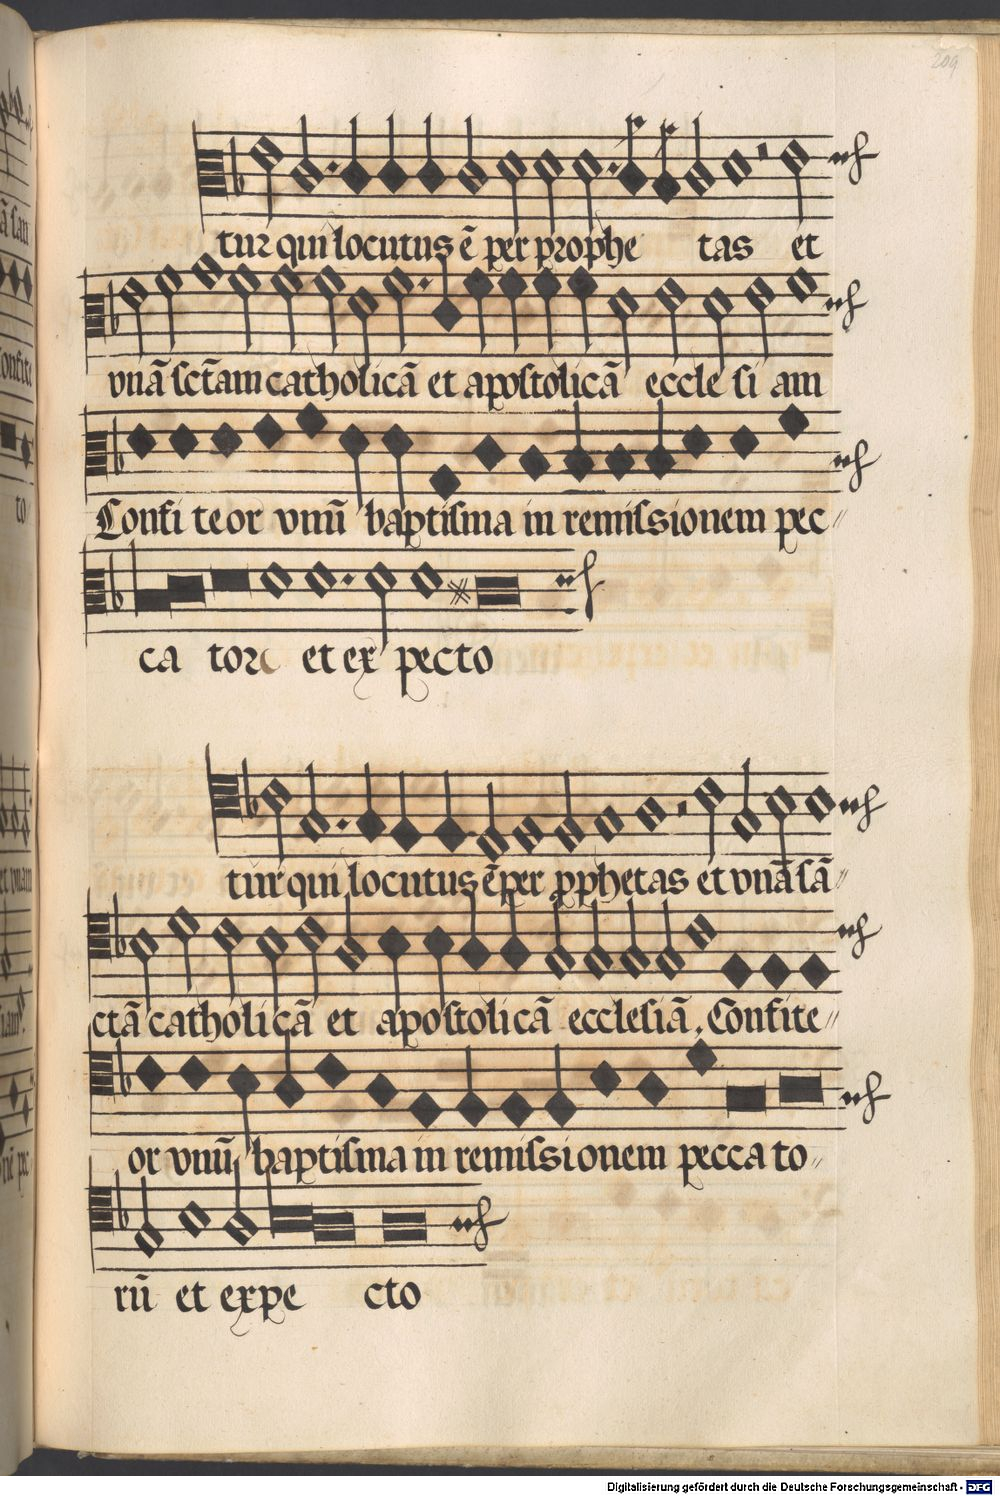 209
tur qui locutus ē per prophe tas et
vnā sctām catholicā et apostolicā eccle si am
Confi teor vnū baptisma in remissionem pec〃
ca tor et ex pecto
tur qui locutus ē per pphetas et vnā sā〃
ctā catholicā et apostolicā ecclesiā, Confite〃
or vnū baptisma in remissionem pecca to〃
rū et expe cto
Digitalisierung gefördert durch die Deutsche Forschungsgemeinschaft - DFG